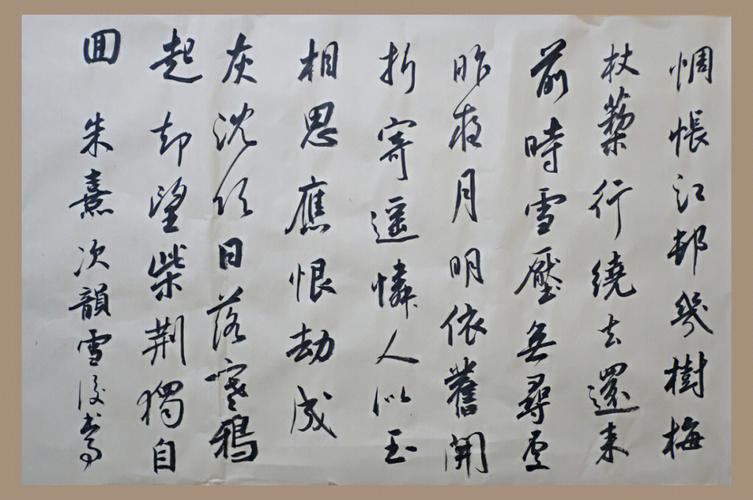 惆悵江邨幾樹梅
杖藜行繞去還来
前時雪壓無尋處
昨夜月明依舊開
折寄遥憐人似玉
相思應恨劫成
灰沈吟日落寒鴉
起却望柴荆獨自
囬 朱熹次韻雪後書事